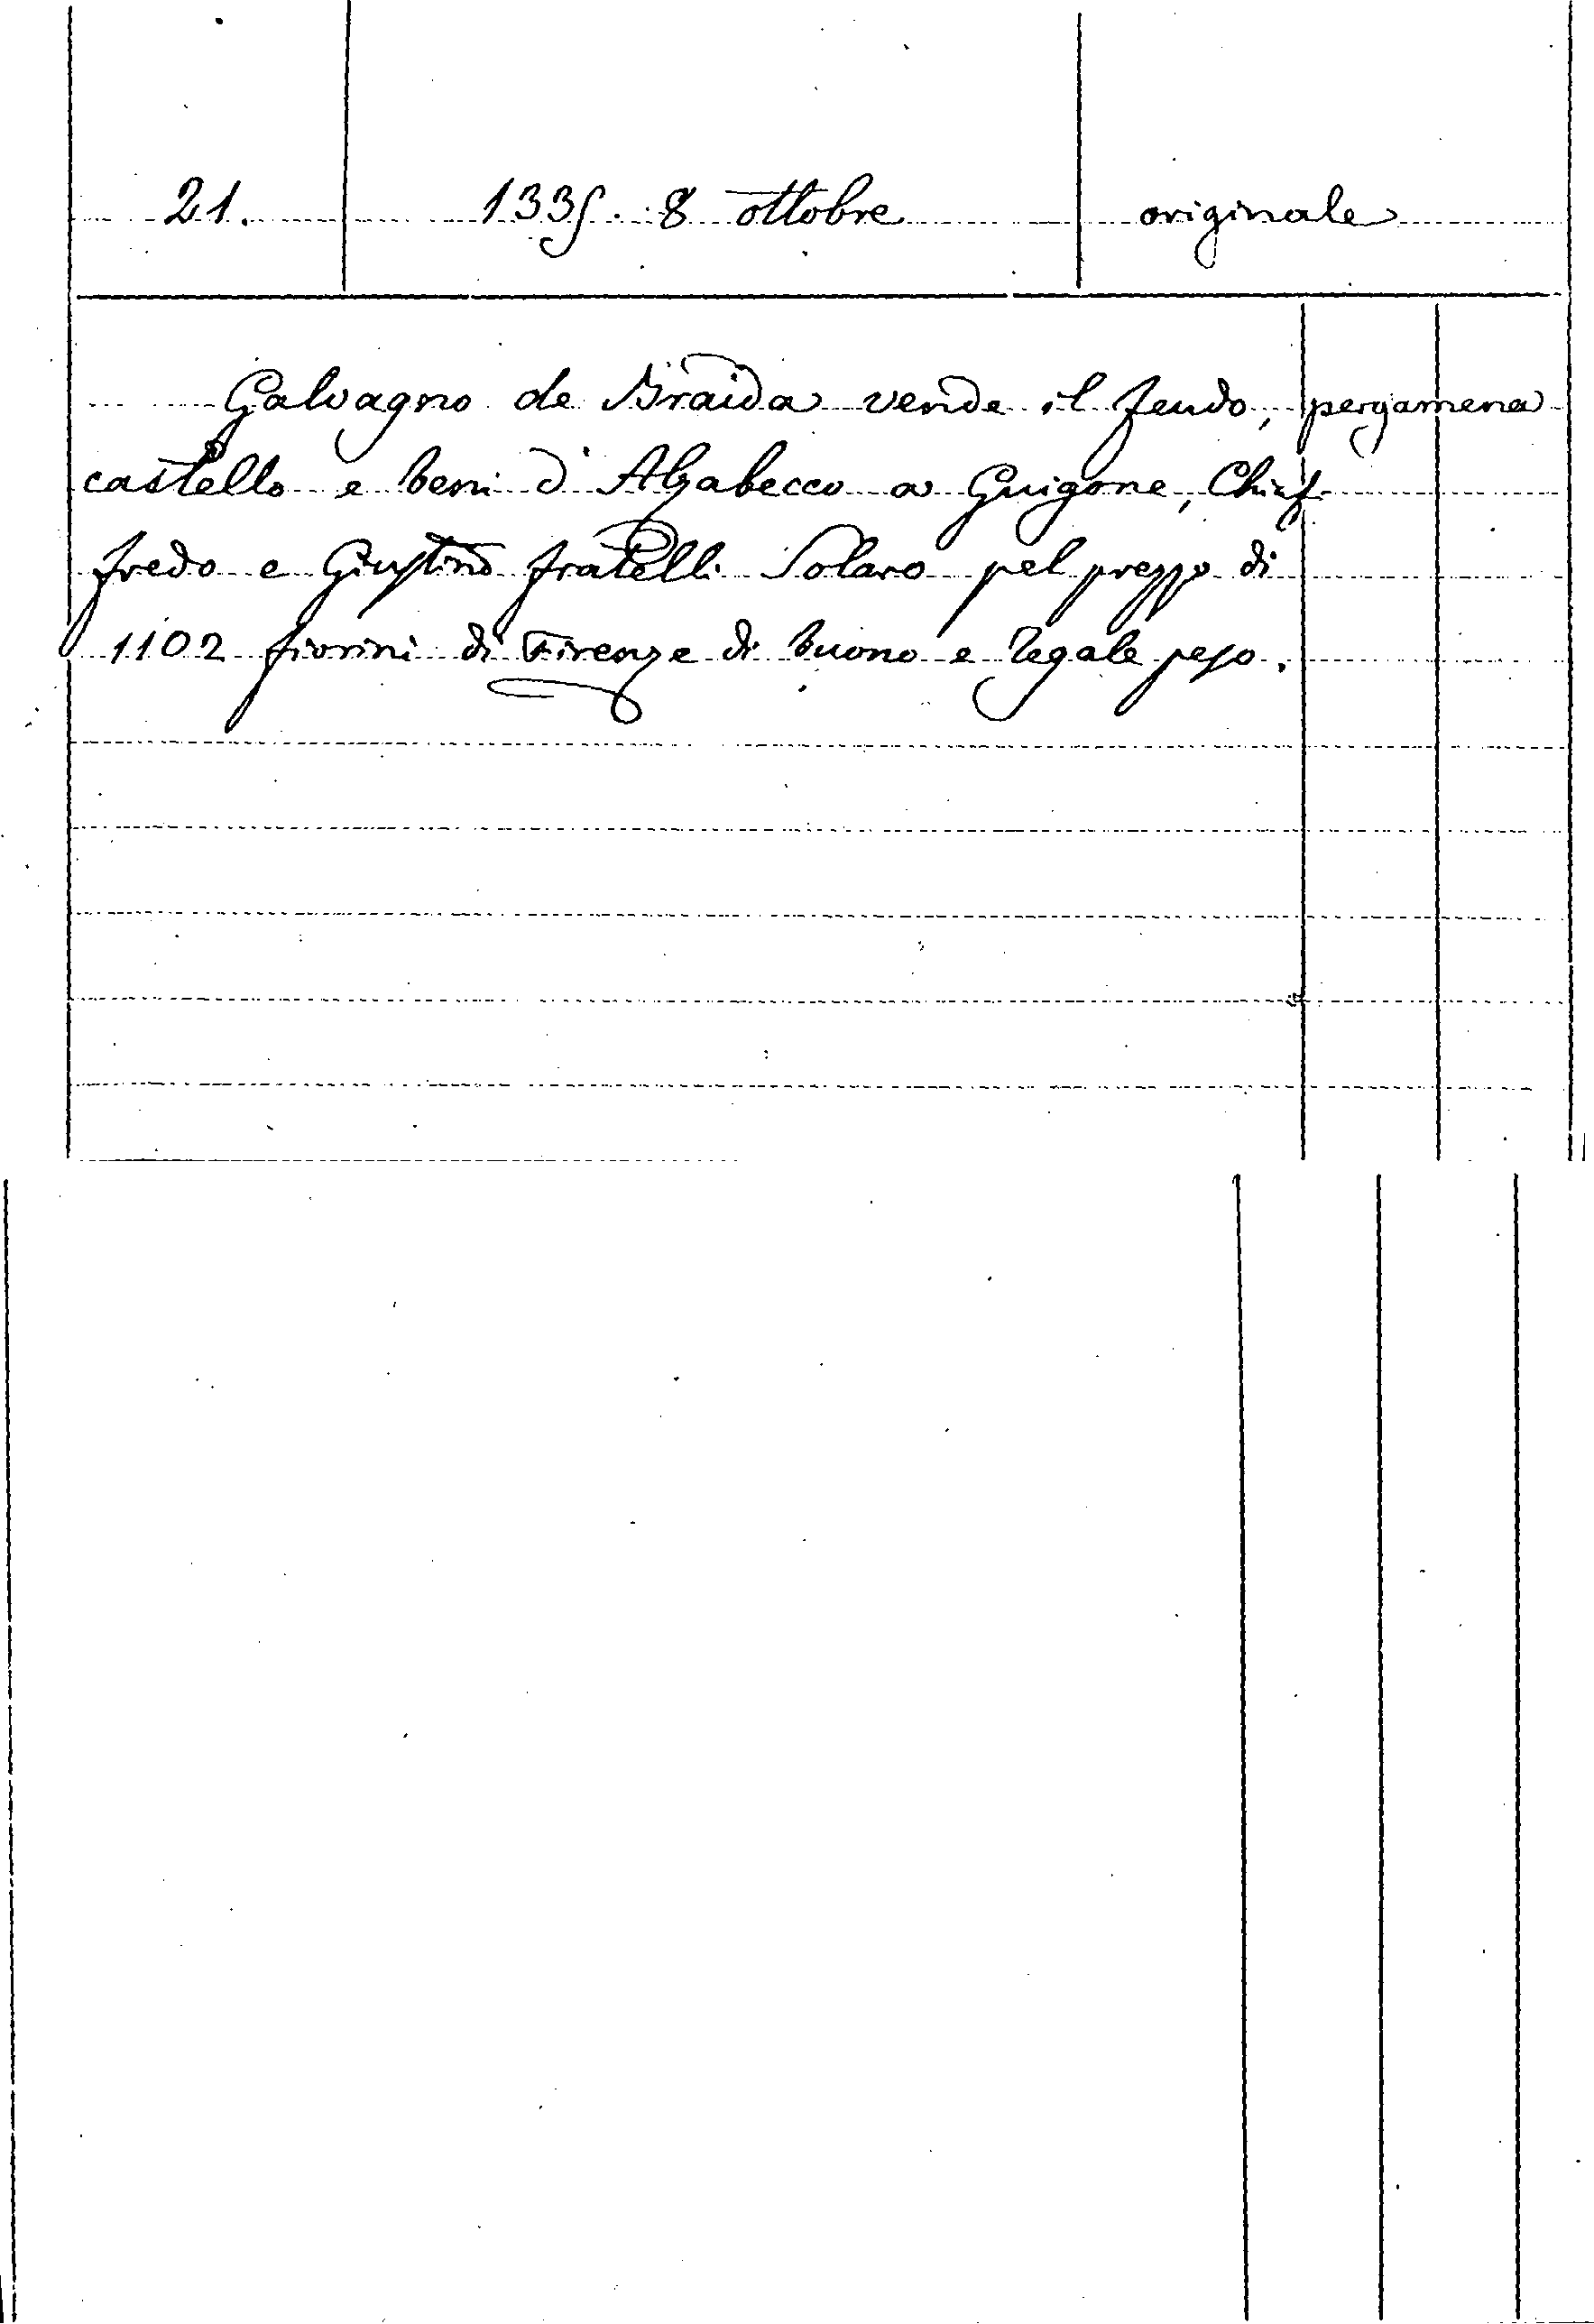 21. 1335. 8 ottobre originale
Galvagno de Braida vende il feudo, pergamena
castello e beni d'Alzabecco a Guigone, Chiaf-
fredo e Giustino fratelli Solaro pel prezzo di
1102 fiorini di Firenze di buono e legale peso.